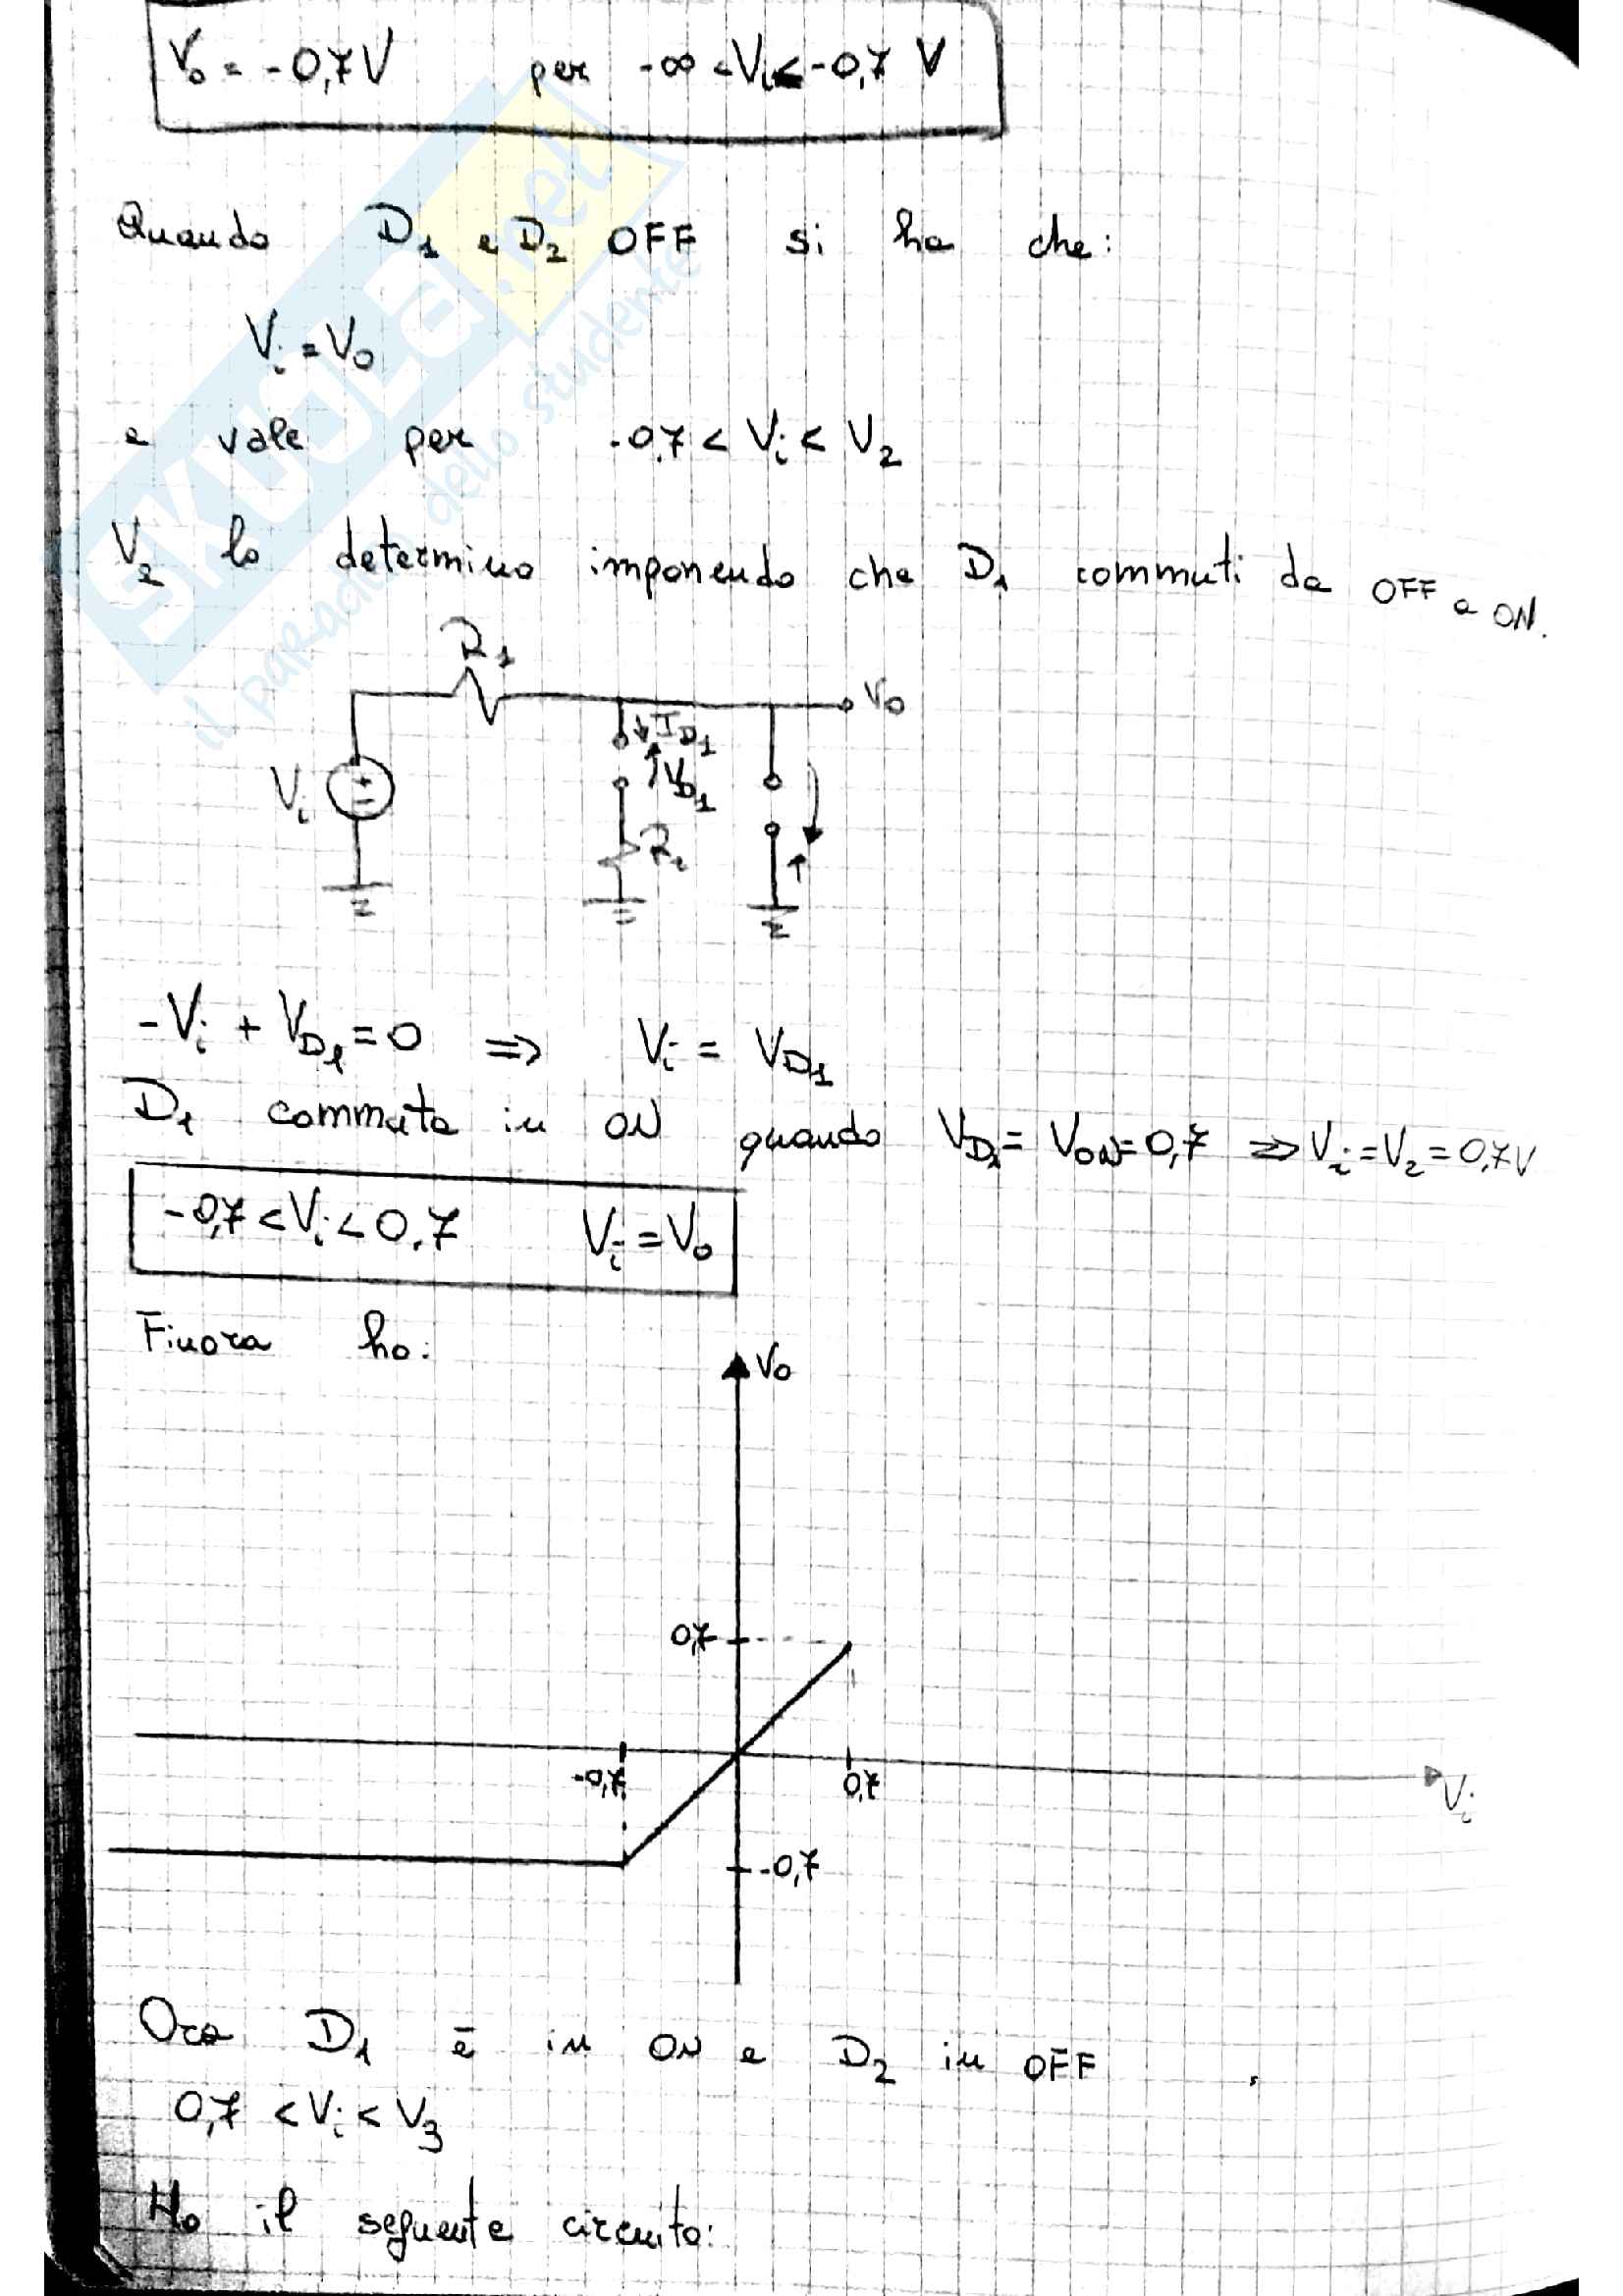 V₀ = -0,7V per -∞ < Vᵢ < -0,7 V
Quando D₁ e D₂ OFF si ha che:
Vᵢ = V₀
e vale per -0,7 < Vᵢ < V₂
V₂ lo determino imponendo che D₁ commuti da OFF a ON.
R₁
V₀
I_D₁
Vᵢ
V_D₁
R₂
-Vᵢ + V_D₁ = 0 ⇒ Vᵢ = V_D₁
D₁ commuta in ON quando V_D₁ = V_ON = 0,7 ⇒ Vᵢ = V₂ = 0,7V
-0,7 < Vᵢ < 0.7 Vᵢ = V₀
Finora ho:
V₀
0,7
-0,7
0,7
Vᵢ
-0,7
Ora D₁ è in ON e D₂ in OFF ,
0,7 < Vᵢ < V₃
Ho il seguente circuito:
SKUOLA.net
il paradiso dello studente